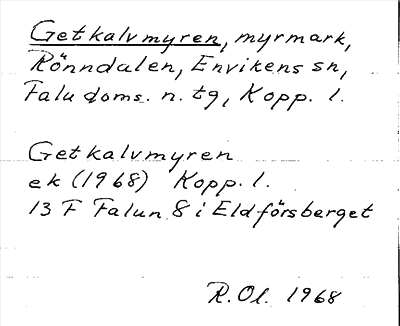 Getkalvmyren, myrmark,
Rönndalen, Envikens sn,
Falu doms. n. tg, Kopp. l.
Getkalvmyren
ek (1968) Kopp. l.
13 F Falun 8 i Eldförsberget
R. Ol. 1968